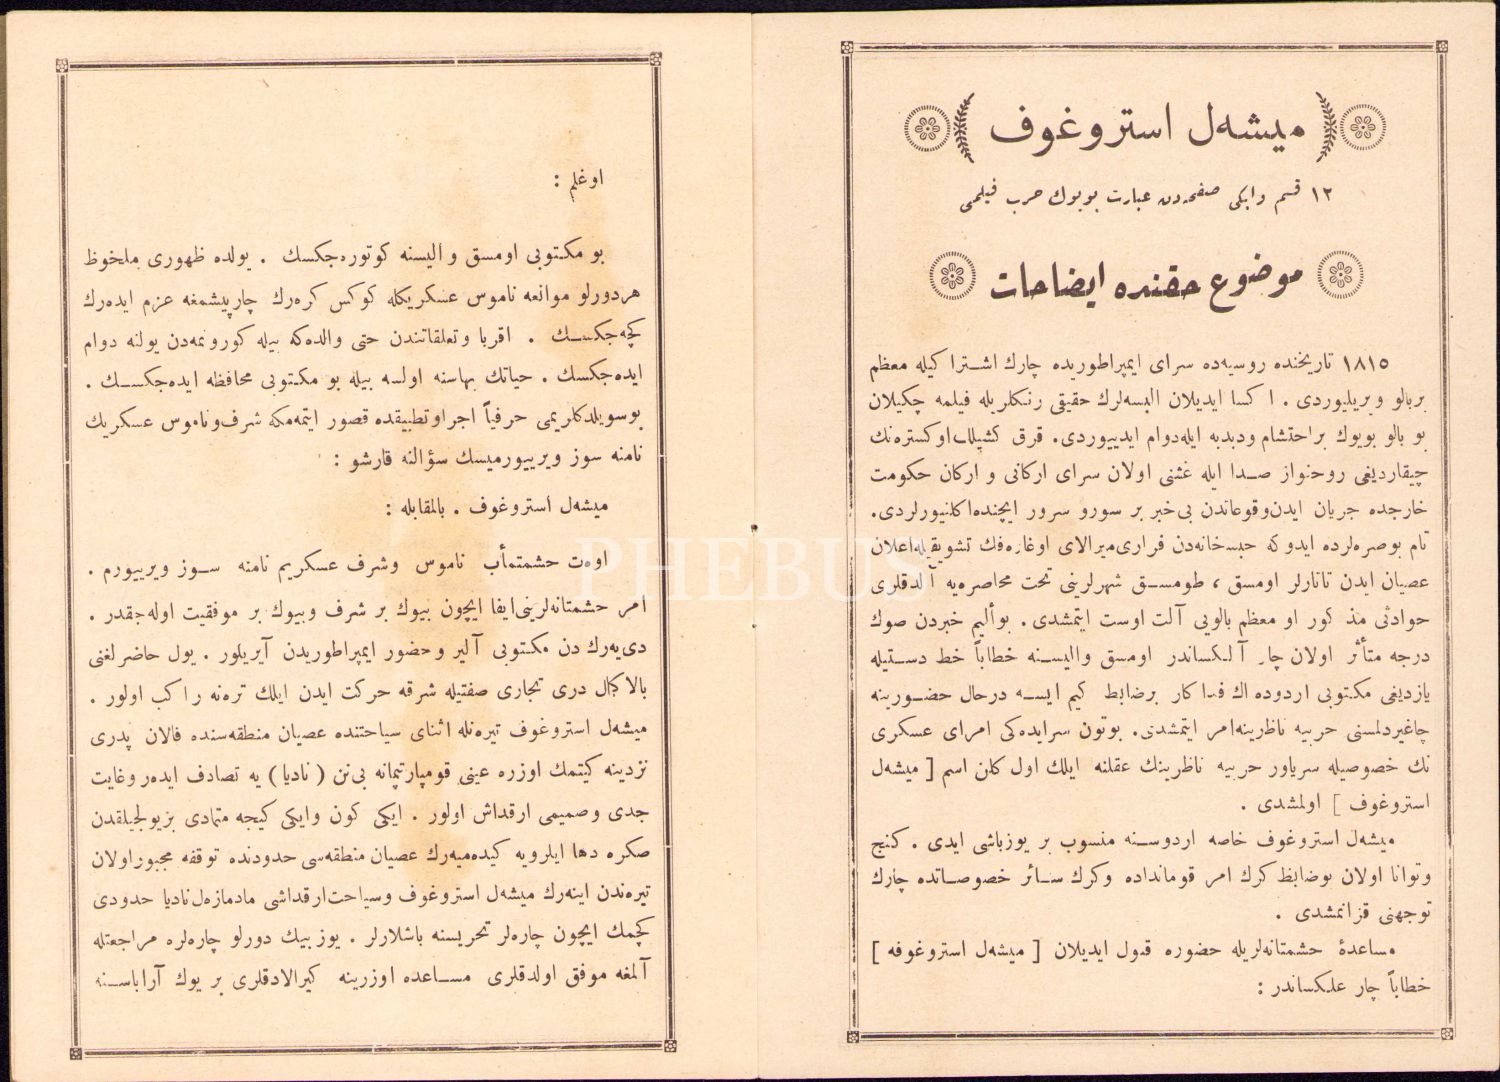 ميشه‌ل استروغوف
١٢ قسم وايكى صفحه‌دن عبارت بويوك حرب فيلمى
موضوع حقنده ايضاحات
١٨١٥ تاريخنده روسيه‌ده سراى ايمپراطوريده چارك اشتراكيله معظم
بربالو ويريليوردى . اكسا ايديلان البسه‌لرك حقيقى رنكلريله فيلمه چكيلان
بو بالو بويوك براحتشام ودبدبه ايله‌دوام ايدييوردى. قرق كشيلك‌اوركستره‌نك
چيقارديغى روحنواز صدا ايله غشى اولان سراى اركانى و اركان حكومت
خارجده جريان ايدن‌وقوعاتدن بى‌خبر بر سورو سرور ايچنده‌اكلنيورلردى.
تام بوصره‌لرده ايدوكه حبسخانه‌دن فرارى‌ميرالاى اوغاره‌فك تشويقيله‌اعلان
عصيان ايدن تاتارلر اومسق ، طومسق شهرلرينى تحت محاصره‌يه آلدقلرى
حوادثى مذكور او معظم بالويى آلت اوست ايتمشدى . بوأليم خبردن صوك
درجه متأثر اولان چار آلكساندر اومسق واليسنه خطاباً خط دستيله
يازديغى مكتوبى اردوده اك فداكار برضابط كيم ايسه درحال حضورينه
چاغيردلمسنى حربيه ناظرينه‌امر ايتمشدى. بوتون سرايده‌كى امراى عسكرى
نك خصوصيله سرياور حربيه ناظرينك عقلنه ايلك اول كلن اسم [ ميشه‌ل
استروغوف ] اولمشدى .
ميشه‌ل استروغوف خاصه اردوسنه منسوب بر يوزباشى ايدى . كنج
وتوانا اولان بوضابط كرك امر قومانداده وكرك سائر خصوصاتده چارك
توجهنى قزانمشدى .
مساعدۀ حشمتانه‌لريله حضوره قبول ايديلان [ ميشه‌ل استروغوفه ]
خطاباً چار علكساندر :
اوغلم :
بو مكتوبى اومسق واليسنه كوتوره‌جكسك . يولده ظهورى ملحوظ
هردورلو موانعه ناموس عسكريكله كوكس كره‌رك چارپيشمغه عزم ايده‌رك
كچه‌جكسك . اقربا وتعلقاتندن حتى والده‌كه بيله كورونمه‌دن يولنه دوام
ايده‌جكسك . حياتك بهاسنه اولسه بيله بو مكتوبى محافظه ايده‌جكسك .
بوسويلدكلريمى حرفياً اجراوتطبيقده قصور ايتمه‌مكه شرف‌وناموس عسكريك
نامنه سوز ويرييورميسك سؤالنه قارشو :
ميشه‌ل استروغوف . بالمقابله :
اوه‌ت حشمتمأب ناموس وشرف عسكريم نامنه سوز ويرييورم .
امر حشمتانه‌لرينى‌ايفا ايچون بيوك بر شرف وبيوك بر موفقيت اوله‌جقدر .
دى‌يه‌رك دن مكتوبى آلير وحضور ايمپراطوريدن آيريلور . يول حاضرلغنى
بالاكمال درى تجارى صفتيله شرقه حركت ايدن ايلك ترەنه راكب اولور .
ميشه‌ل استروغوف تيره‌نله اثناى سياحتنده عصيان منطقه‌سنده قالان پدرى
نزدينه كيتمك اوزره عينى قومپارتيمانه بى‌نن ( ناديا ) يه تصادف ايده‌ر وغايت
جدى وصميمى ارقداش اولور . ايكى كون وايكى كيجه متمادى بريولجيلقدن
صكره دها ايلرويه كيده‌ميه‌رك عصيان منطقه‌سى حدودنده توقفه مجبوراولان
تيره‌ندن اينه‌رك ميشه‌ل استروغوف وسياحت‌ارقداشى مادمازه‌ل‌ناديا حدودى
كچمك ايچون چاره‌لر تحريسنه باشلارلر . يوزبيك دورلو چاره‌لره مراجعتله
آلمغه موفق اولدقلرى مساعده اوزرينه كيرالادقلرى بر يوك آراباسنه
PHEBUS